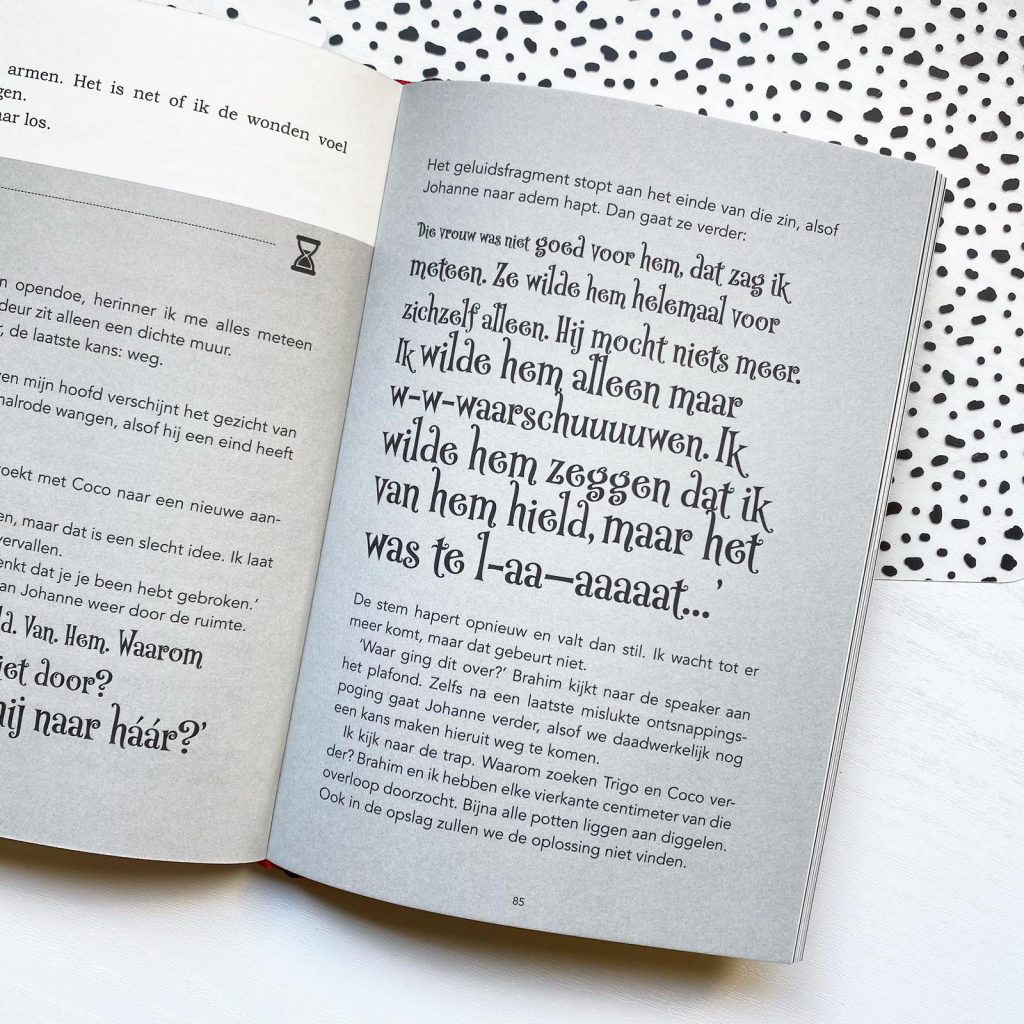 armen. Het is net of ik de wonden voel
gen.
ar los.
n opendoe, herinner ik me alles meteen
deur zit alleen een dichte muur.
, de laatste kans: weg.
ven mijn hoofd verschijnt het gezicht van
nalrode wangen, alsof hij een eind heeft
oekt met Coco naar een nieuwe aan-
en, maar dat is een slecht idee. Ik laat
vervallen.
enkt dat je je been hebt gebroken.’
an Johanne weer door de ruimte.
ld. Van. Hem. Waarom
iet door?
hij naar háár?’
Het geluidsfragment stopt aan het einde van die zin, alsof
Johanne naar adem hapt. Dan gaat ze verder:
Die vrouw was niet goed voor hem, dat zag ik
meteen. Ze wilde hem helemaal voor
zichzelf alleen. Hij mocht niets meer.
Ik wilde hem alleen maar
w-w-waarschuuuuwen. Ik
wilde hem zeggen dat ik
van hem hield, maar het
was te l-aa–aaaaat...’
De stem hapert opnieuw en valt dan stil. Ik wacht tot er
meer komt, maar dat gebeurt niet.
‘Waar ging dit over?’ Brahim kijkt naar de speaker aan
het plafond. Zelfs na een laatste mislukte ontsnappings-
poging gaat Johanne verder, alsof we daadwerkelijk nog
een kans maken hieruit weg te komen.
Ik kijk naar de trap. Waarom zoeken Trigo en Coco ver-
der? Brahim en ik hebben elke vierkante centimeter van die
overloop doorzocht. Bijna alle potten liggen aan diggelen.
Ook in de opslag zullen we de oplossing niet vinden.
85